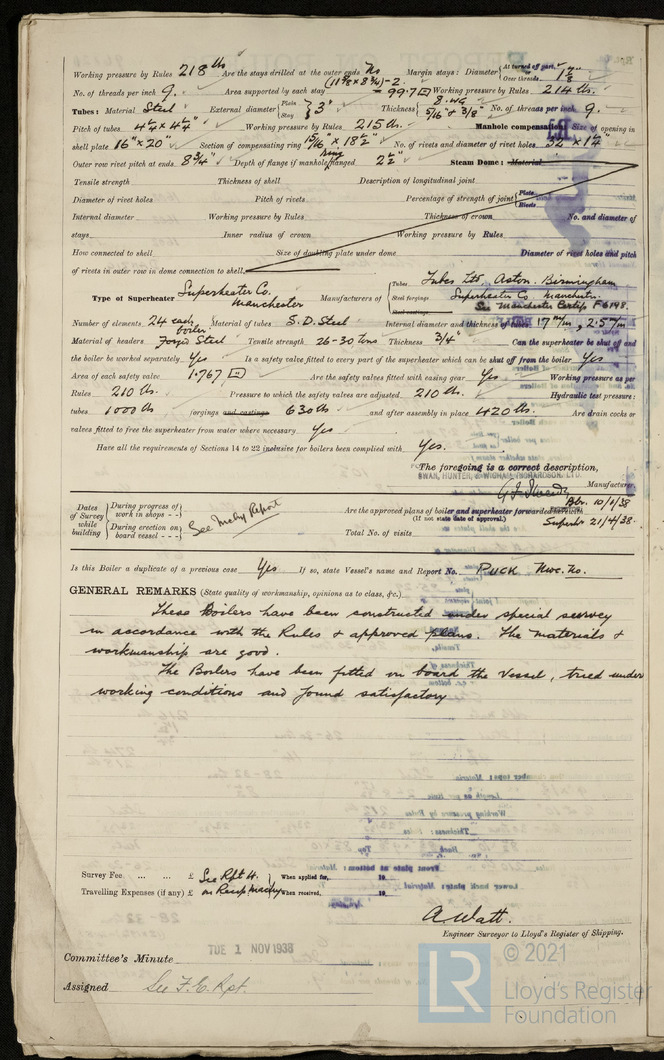 Working pressure by Rules 218 lbs Are the stays drilled at the outer ends No Margin stays: Diameter { At turned off part, Over threads 1 7/8"
No. of threads per inch 9. Area supported by each stay (11 5/8 x 8 3/4) - 2 = 99.7 Working pressure by Rules 214 lbs.
Tubes: Material Steel External diameter { Plain Stay } 3" Thickness { 8 WG 5/16" & 3/8" No. of threads per inch 9.
Pitch of tubes 4 1/4 x 4 1/4" Working pressure by Rules 215 lbs. Manhole compensation: Size of opening in
shell plate 16" x 20" Section of compensating ring 18 1/2" No. of rivets and diameter of rivet holes 32 x 1 1/4"
Outer row rivet pitch at ends 8 3/4" Depth of flange if manhole flanged ring 2 1/2" Steam Dome: Material
Tensile strength Thickness of shell Description of longitudinal joint
Diameter of rivet holes Pitch of rivets Percentage of strength of joint { Plate Rivets
Internal diameter Working pressure by Rules Thickness of crown No. and diameter of
stays Inner radius of crown Working pressure by Rules
How connected to shell Size of doubling plate under dome Diameter of rivet holes and pitch
of rivets in outer row in dome connection to shell
Type of Superheater Superheater Co. Manchester Manufacturers of { Tubes Tubes Ltd, Aston, Birmingham
Steel forgings Superheater Co. Manchester.
Steel castings See Manchester Certifs F6198.
Number of elements 24 each boiler. Material of tubes S.D. Steel Internal diameter and thickness of tubes 17 m/m, 2.5 m/m
Material of headers Forged Steel Tensile strength 26-30 tons Thickness 3/4" Can the superheater be shut off and
the boiler be worked separately Yes Is a safety valve fitted to every part of the superheater which can be shut off from the boiler Yes
Area of each safety valve 1.767 Are the safety valves fitted with easing gear Yes Working pressure as per
Rules 210 lbs. Pressure to which the safety valves are adjusted 210 lbs. Hydraulic test pressure:
tubes 1000 lbs forgings and castings 630 lbs and after assembly in place 420 lbs. Are drain cocks or
valves fitted to free the superheater from water where necessary Yes
Have all the requirements of Sections 14 to 22 inclusive for boilers been complied with Yes.
The foregoing is a correct description,
SWAN, HUNTER, & WIGHAM RICHARDSON, LTD.
Manufacturer.
Dates of Survey while building { During progress of work in shops - - } { During erection on board vessel - - - } See Mchy Report
Are the approved plans of boiler and superheater forwarded herewith Blr. 10/1/38
(If not state date of approval.) Superhr 21/4/38.
Total No. of visits
Is this Boiler a duplicate of a previous case Yes If so, state Vessel's name and Report No. PUCK Nwc. No.
GENERAL REMARKS (State quality of workmanship, opinions as to class, &c.)
These Boilers have been constructed under special survey
in accordance with the Rules & approved plans. The materials &
workmanship are good.
The Boilers have been fitted on board the vessel, tried under
working conditions and found satisfactory
Survey Fee ... ... £ See Rpt 4. When applied for, 19
Travelling Expenses (if any) £ on Recip machy When received, 19
A Watt.
Engineer Surveyor to Lloyd's Register of Shipping.
TUE 1 NOV 1938
Committee's Minute
Assigned See F.E. Rpt.
LR © 2021
Lloyd's Register
Foundation